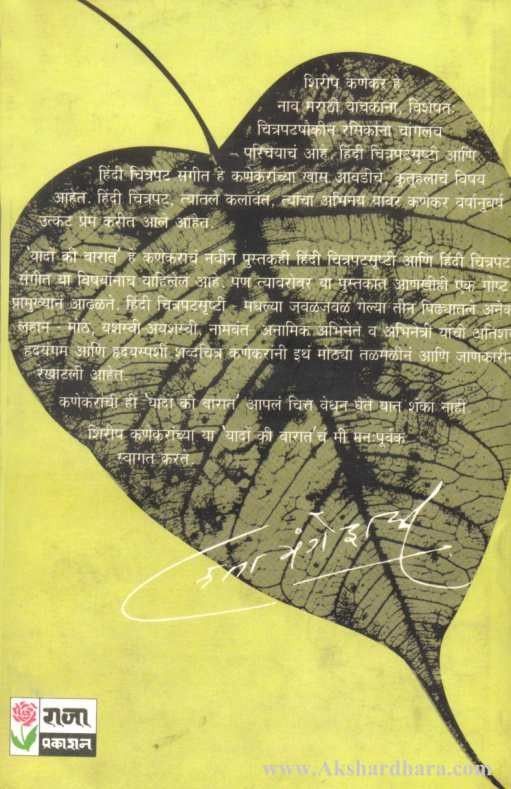 शिरीष कणेकर हे
नाव मराठी वाचकांना, विशेषत:
चित्रपटशौकीन रसिकांना चांगलंच
परिचयाचं आहे. हिंदी चित्रपटसृष्टी आणि
हिंदी चित्रपट संगीत हे कणेकरांच्या खास आवडीचे, कुतूहलाचे विषय
आहेत. हिंदी चित्रपट, त्यातले कलावंत, त्यांचा अभिनय यावर कणकर वर्षानुवर्ष
उत्कट प्रेम करीत आले आहेत.
'यादों की बारात' हे कणेकरांचं नवीन पुस्तकही हिंदी चित्रपटसृष्टी आणि हिंदी चित्रपट
संगीत या विषयांनाच वाहिलेलं आहे. पण त्याबरोबर या पुस्तकात आणखीही एक गोष्ट
प्रामुख्यानं आढळते. हिंदी चित्रपटसृष्टी - मधल्या जवळजवळ गेल्या तीन पिढ्यातले अनेक
लहान - मोठे, यशस्वी अयशस्वी, नामवंत - अनामिक अभिनेते व अभिनेत्री यांची अतिशय
हृदयंगम आणि हृदयस्पर्शी शब्दचित्रं कणेकरांनी इथं मोठ्या तळमळीनं आणि जाणकारीनं
रेखाटली आहेत.
कणेकरांची ही 'यादों की बारात' आपलं चित्त वेधून घेते यात शंका नाही
शिरीष कणेकरांच्या या 'यादों की बारात'चं मी मन:पूर्वक
स्वागत करते.
लता मंगेशकर
राजा
प्रकाशन
www.Akshardhara.com